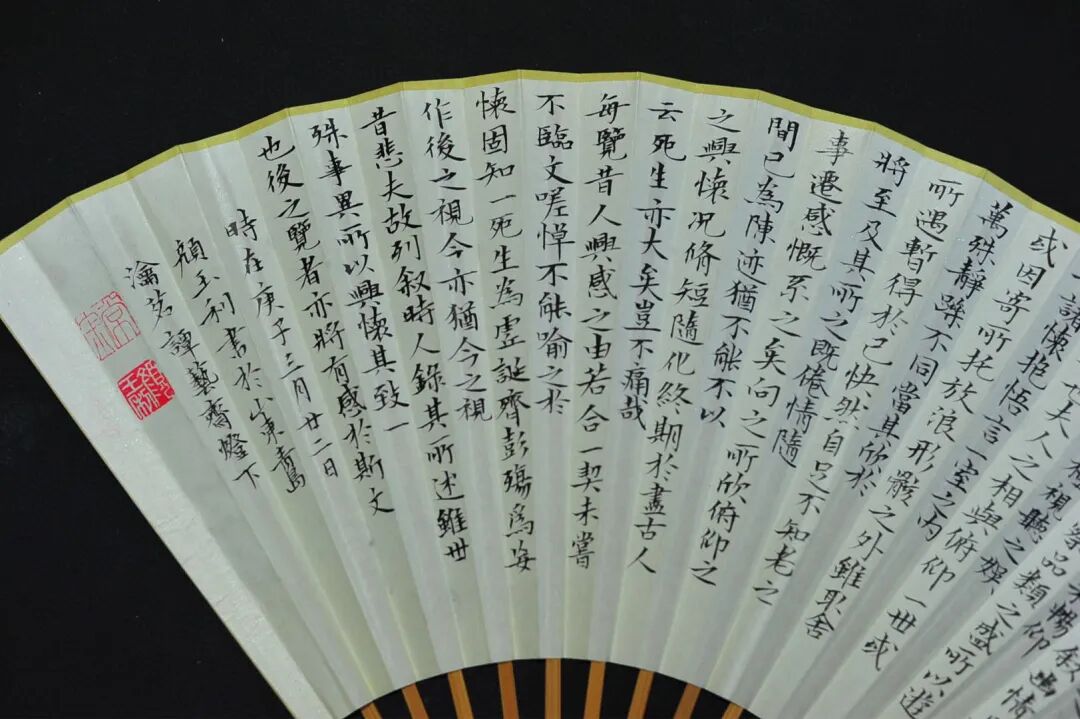 暢叙幽情
暢仰
品類之盛所以遊
視聽之娛
也夫人之相與俯仰一世或
諸懷抱悟言一室之內
或因寄所托放浪形骸之外雖取舍
萬殊靜躁不同當其欣於
所遇暫得於己快然自足不知老之
將至及其所之既倦情隨
事遷感慨系之矣向之所欣俯仰之
間已為陳迹猶不能不以
之興懷況脩短隨化終期於盡古人
云死生亦大矣豈不痛哉
每覽昔人興感之由若合一契未嘗
不臨文嗟悼不能喻之於
懷固知一死生為虛誕齊彭殤為妄
作後之視今亦猶今之視
昔悲夫故列叙時人錄其所述雖世
殊事異所以興懷其致一
也後之覽者亦將有感於斯文
時在庚子三月廿二日
顏玉利書於山東青島
瀹茗譚藝齋燈下